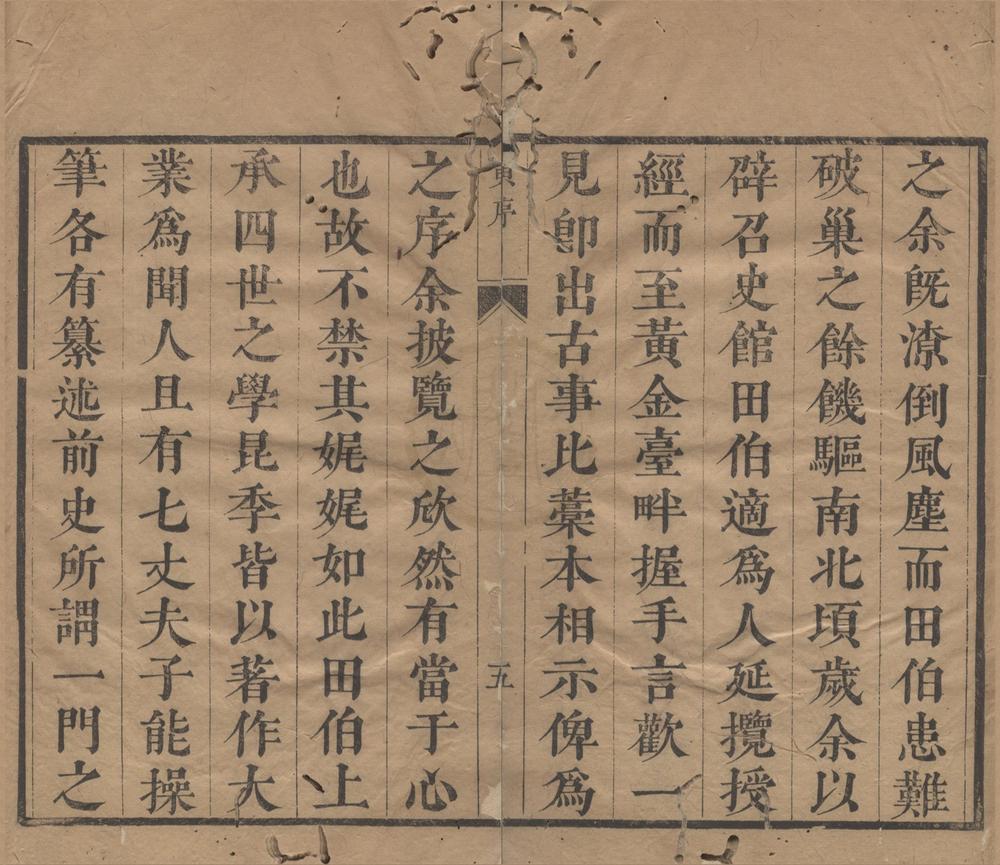 之余旣潦倒風塵而田伯患難
破巢之餘饑驅南北頃歲余以
辟召史館田伯適爲人延攬授
經而至黃金臺畔握手言歡一
見卽出古事比藁本相示俾爲
序
五
之序余披覽之欣然有當于心
也故不禁其娓娓如此田伯上
承四世之學昆季皆以著作大
業爲聞人且有七丈夫子能操
筆各有纂述前史所謂一門之